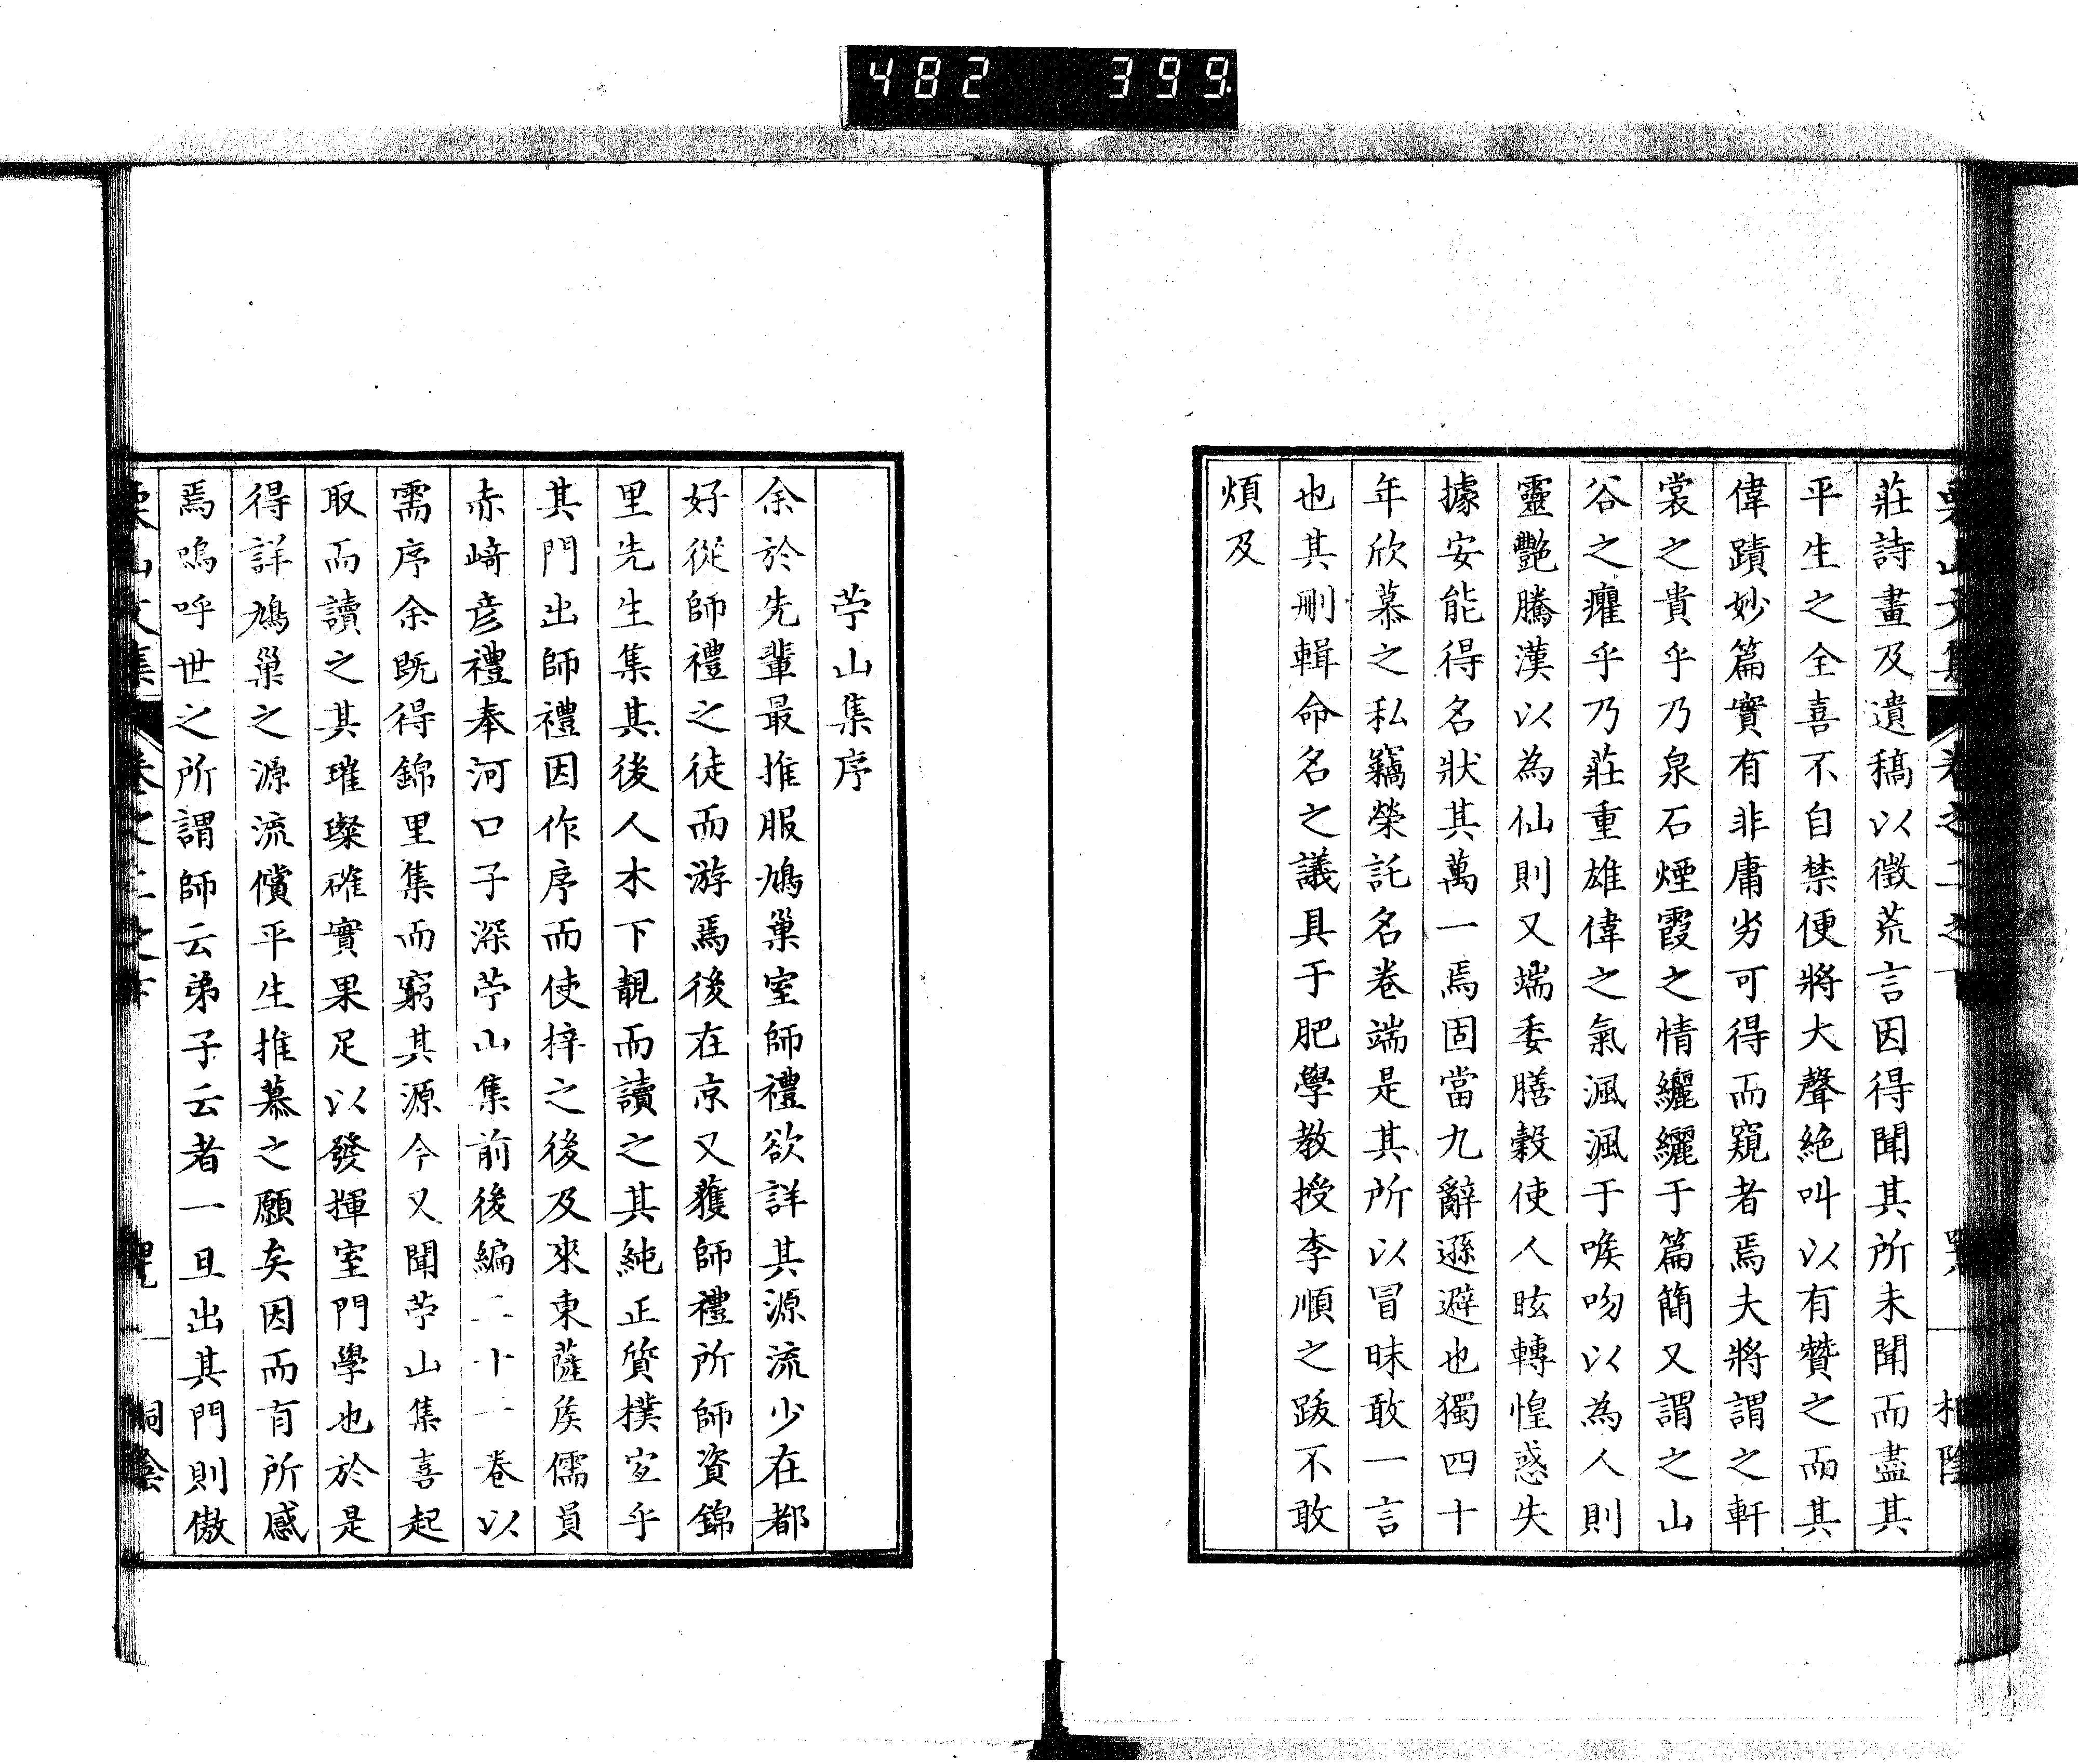 482 399
莊詩畫及遺稿以徵荒言因得聞其所未聞而盡其
平生之全喜不自禁便將大聲絶叫以有贊之而其
偉蹟妙篇實有非庸劣可得而窺者焉夫將謂之軒
裳之貴乎乃泉石煙霞之情纚纚于篇簡又謂之山
谷之癯乎乃莊重雄偉之氣渢渢于喉吻以為人則
靈艷騰漢以為仙則又端委膳穀使人眩轉惶惑失
據安能得名狀其萬一焉固當九辭遜避也獨四十
年欣慕之私竊榮託名卷端是其所以冒昧敢一言
也其刪輯命名之議具于肥學教授李順之跋不敢
煩及
苧山集序
余於先輩最推服鳩巢室師禮欲詳其源流少在都
好從師禮之徒而游焉後在京又獲師禮所師資錦
里先生集其後人木下靚而讀之其純正質樸宜乎
其門出師禮因作序而使梓之後及來東薩矦儒員
赤﨑彦禮奉河口子深苧山集前後編二十一卷以
需序余既得錦里集而窮其源今又聞苧山集喜起
取而讀之其璀璨確實果足以發揮室門學也於是
得詳鳩巢之源流償平生推慕之願矣因而有所感
焉嗚呼世之所謂師云弟子云者一旦出其門則傲
栗山文集 卷之二之下